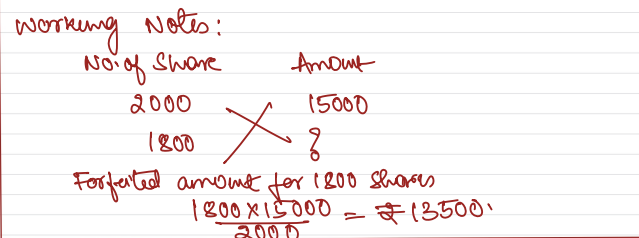 Working Notes:
No. of Share Amount
2000 15000
1800 ?
Forfeited amount for 1800 shares
1800 x 15000 = ₹ 13500.
2000